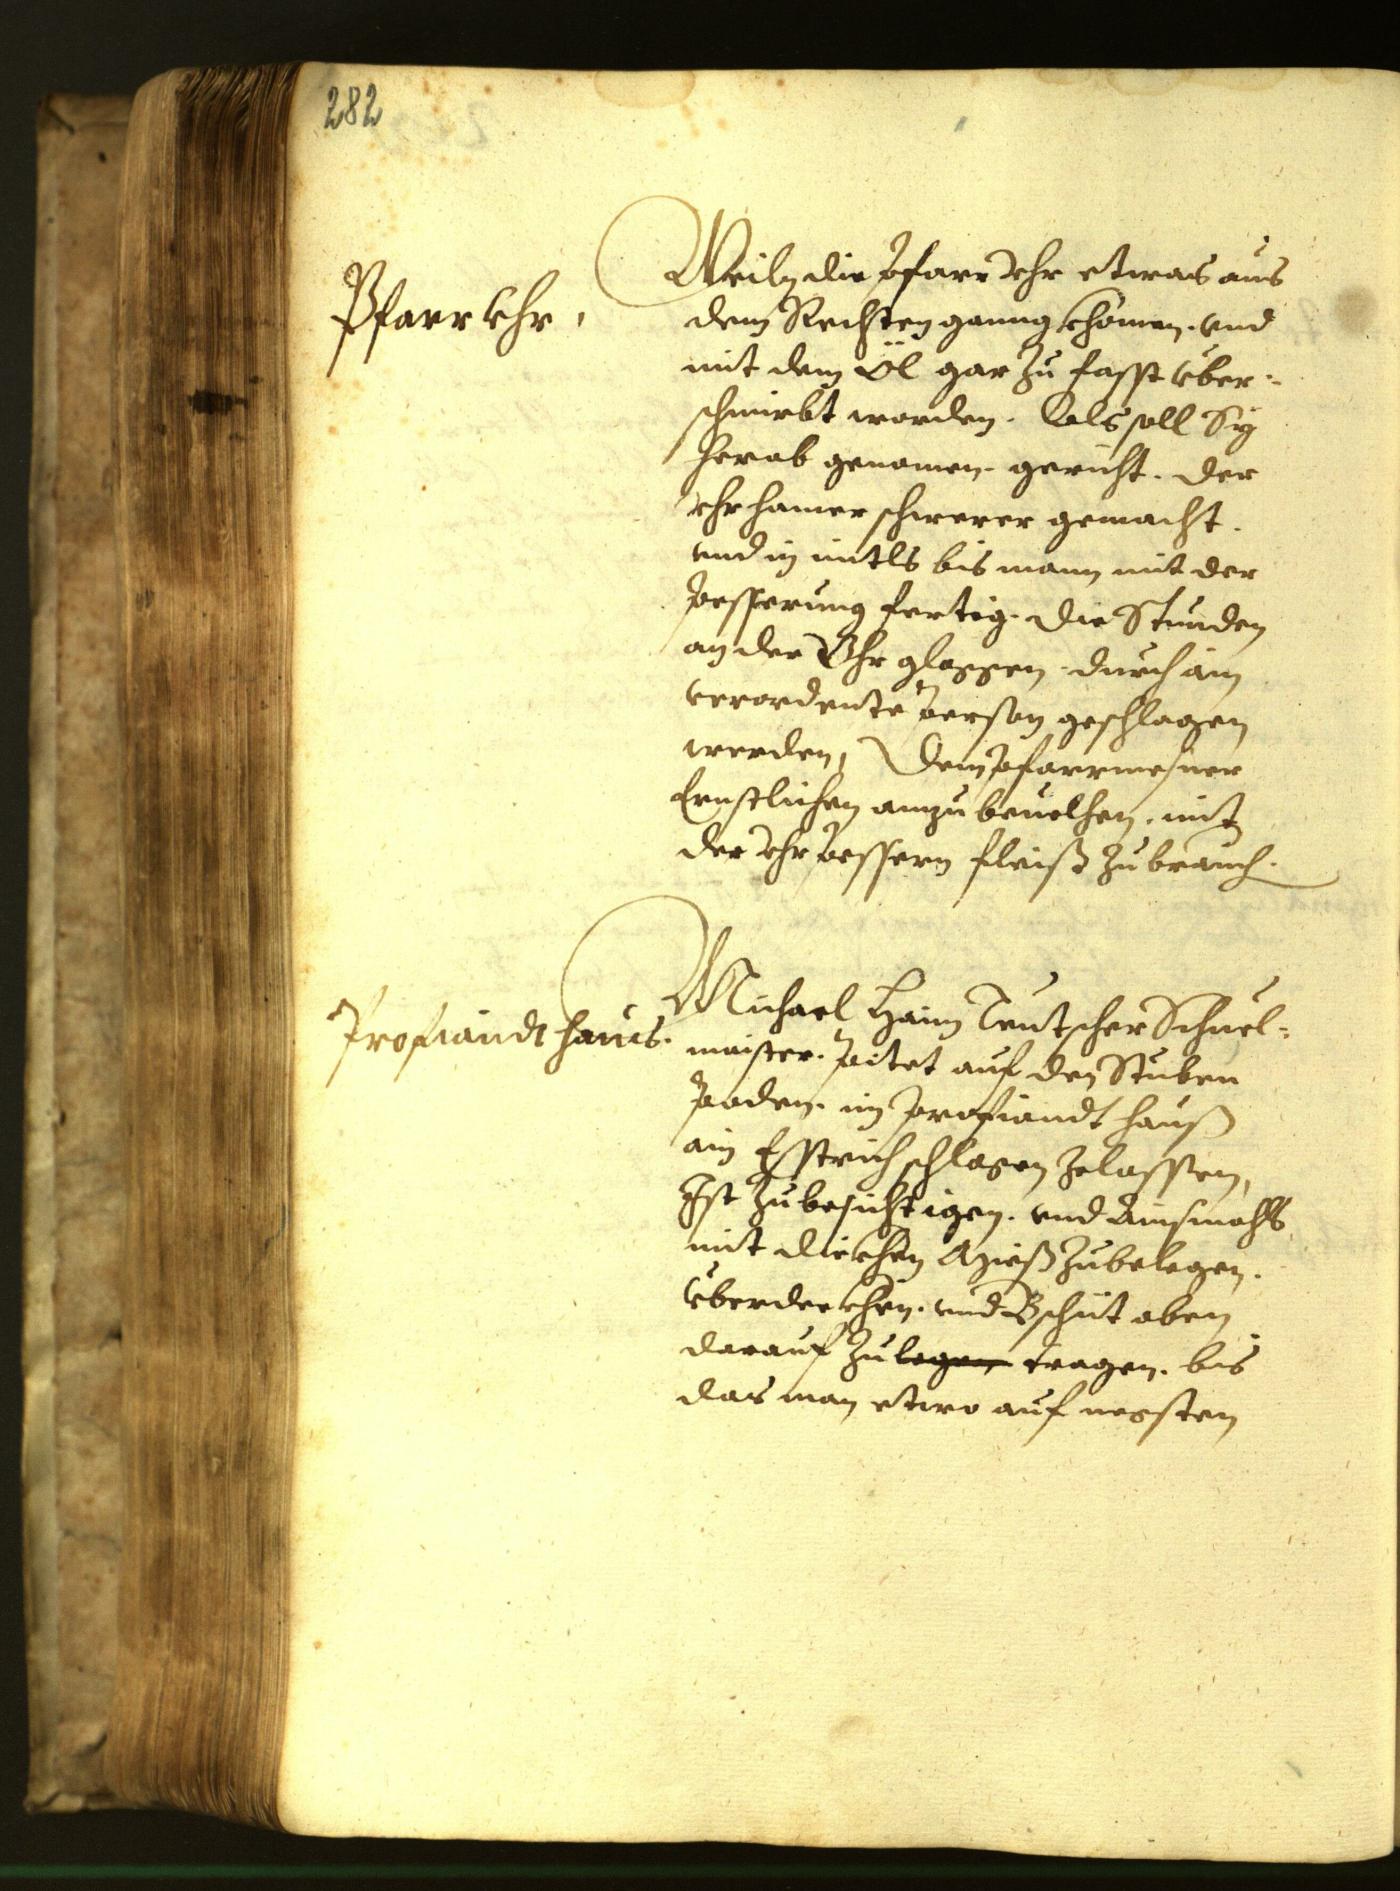 282
Pfarr Vhr,
Weiln die Pfarr Vhr etwas aus
dem Rechten ganng khomen. vnd
mit dem Öl gar zu fasst vber-
schmirbt worden. Als soll Sy
herab genomen. gericht. der
vhr hamer schwerer gemacht.
vnd in mitls bis mann mit der
Pesserung fertig. die Stunden
an der Vhr gloggen. durch ain
verordente Person geschlagen
werden, Dem Pfarrmesner
Ernstlichen anzubeuelhen. mit
der vhr Pessern fleiß zubrauch.
Profiandt haus.
Michael Haim Teutscher Schuel-
maister. Pitet auf den Stuben
Poden. im Profiandt hauß
ain Esstrich schlagen zelassen,
Ist zubesichtigen. vnd Ainsmahls
mit dickhen zubelegen.
vberdeckhen. vnd Bschüt aben
darauf zu legen tragen. bis
das man etwo auf negsten